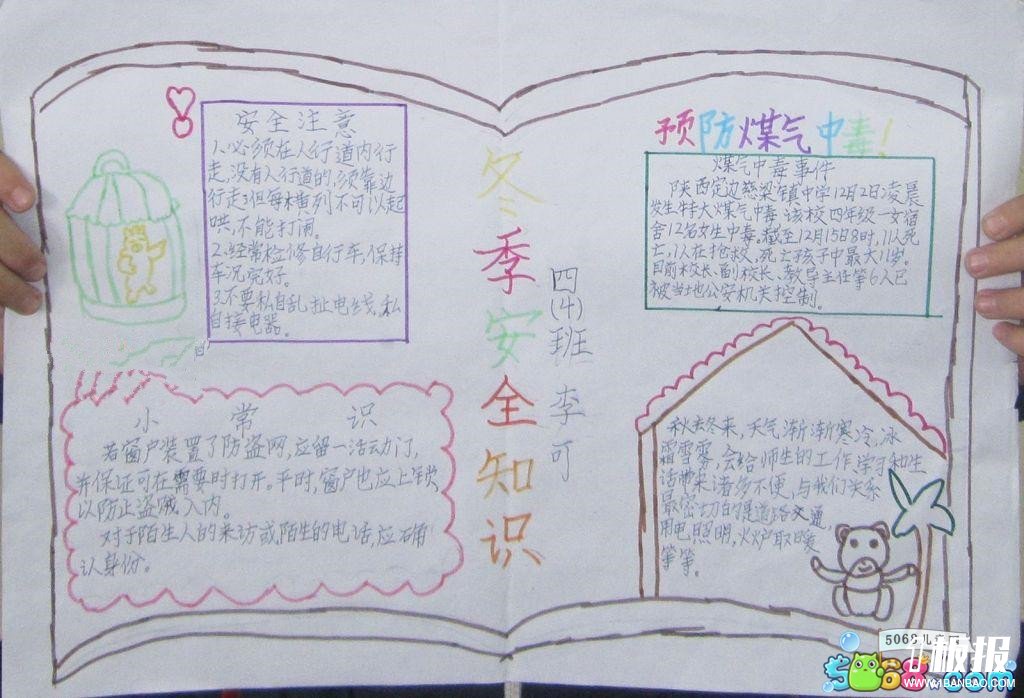 冬季安全知识
四(4)班 李可
安全注意
1、必须在人行道内行
走,没有人行道的,须靠边
行走,但每木横列不可以起
哄,不能打闹。
2、经常检修自行车,保持
车况完好。
3、不要私自乱扯电线,私
自接电器。
小常识
若窗户装置了防盗网,应留一活动门,
并保证可在需要时打开。平时,窗户也应上锁
以防止盗贼入内。
对于陌生人的来访或陌生的电话,应确
认身份。
预防煤气中毒!
煤气中毒事件
陕西定边 梁镇中学12月2日凌晨
发生特大煤气中毒该校四年级一女宿
舍12名女生中毒。截至12月15日8时,11人死
亡,1人在抢救,死亡孩子中最大11岁。
目前校长、副校长、教导主任等6人已
被当地公安机关控制。
秋去冬来,天气渐渐寒冷,冰
霜雪雾,会给师生的工作学习和生
活带来诸多不便,与我们关系
最密切的是道路交通,
用电照明,火炉取暖
等等。
5068儿童
极报
WWW.1BANBAO.COM